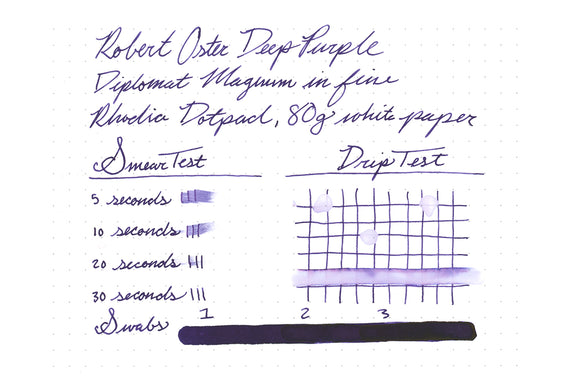 Robert Oster Deep Purple
Diplomat Magnum in fine
Rhodia Dotpad, 80g white paper
Smear Test
Drip Test
5 seconds
10 seconds
20 seconds
30 seconds
Swabs 1 2 3